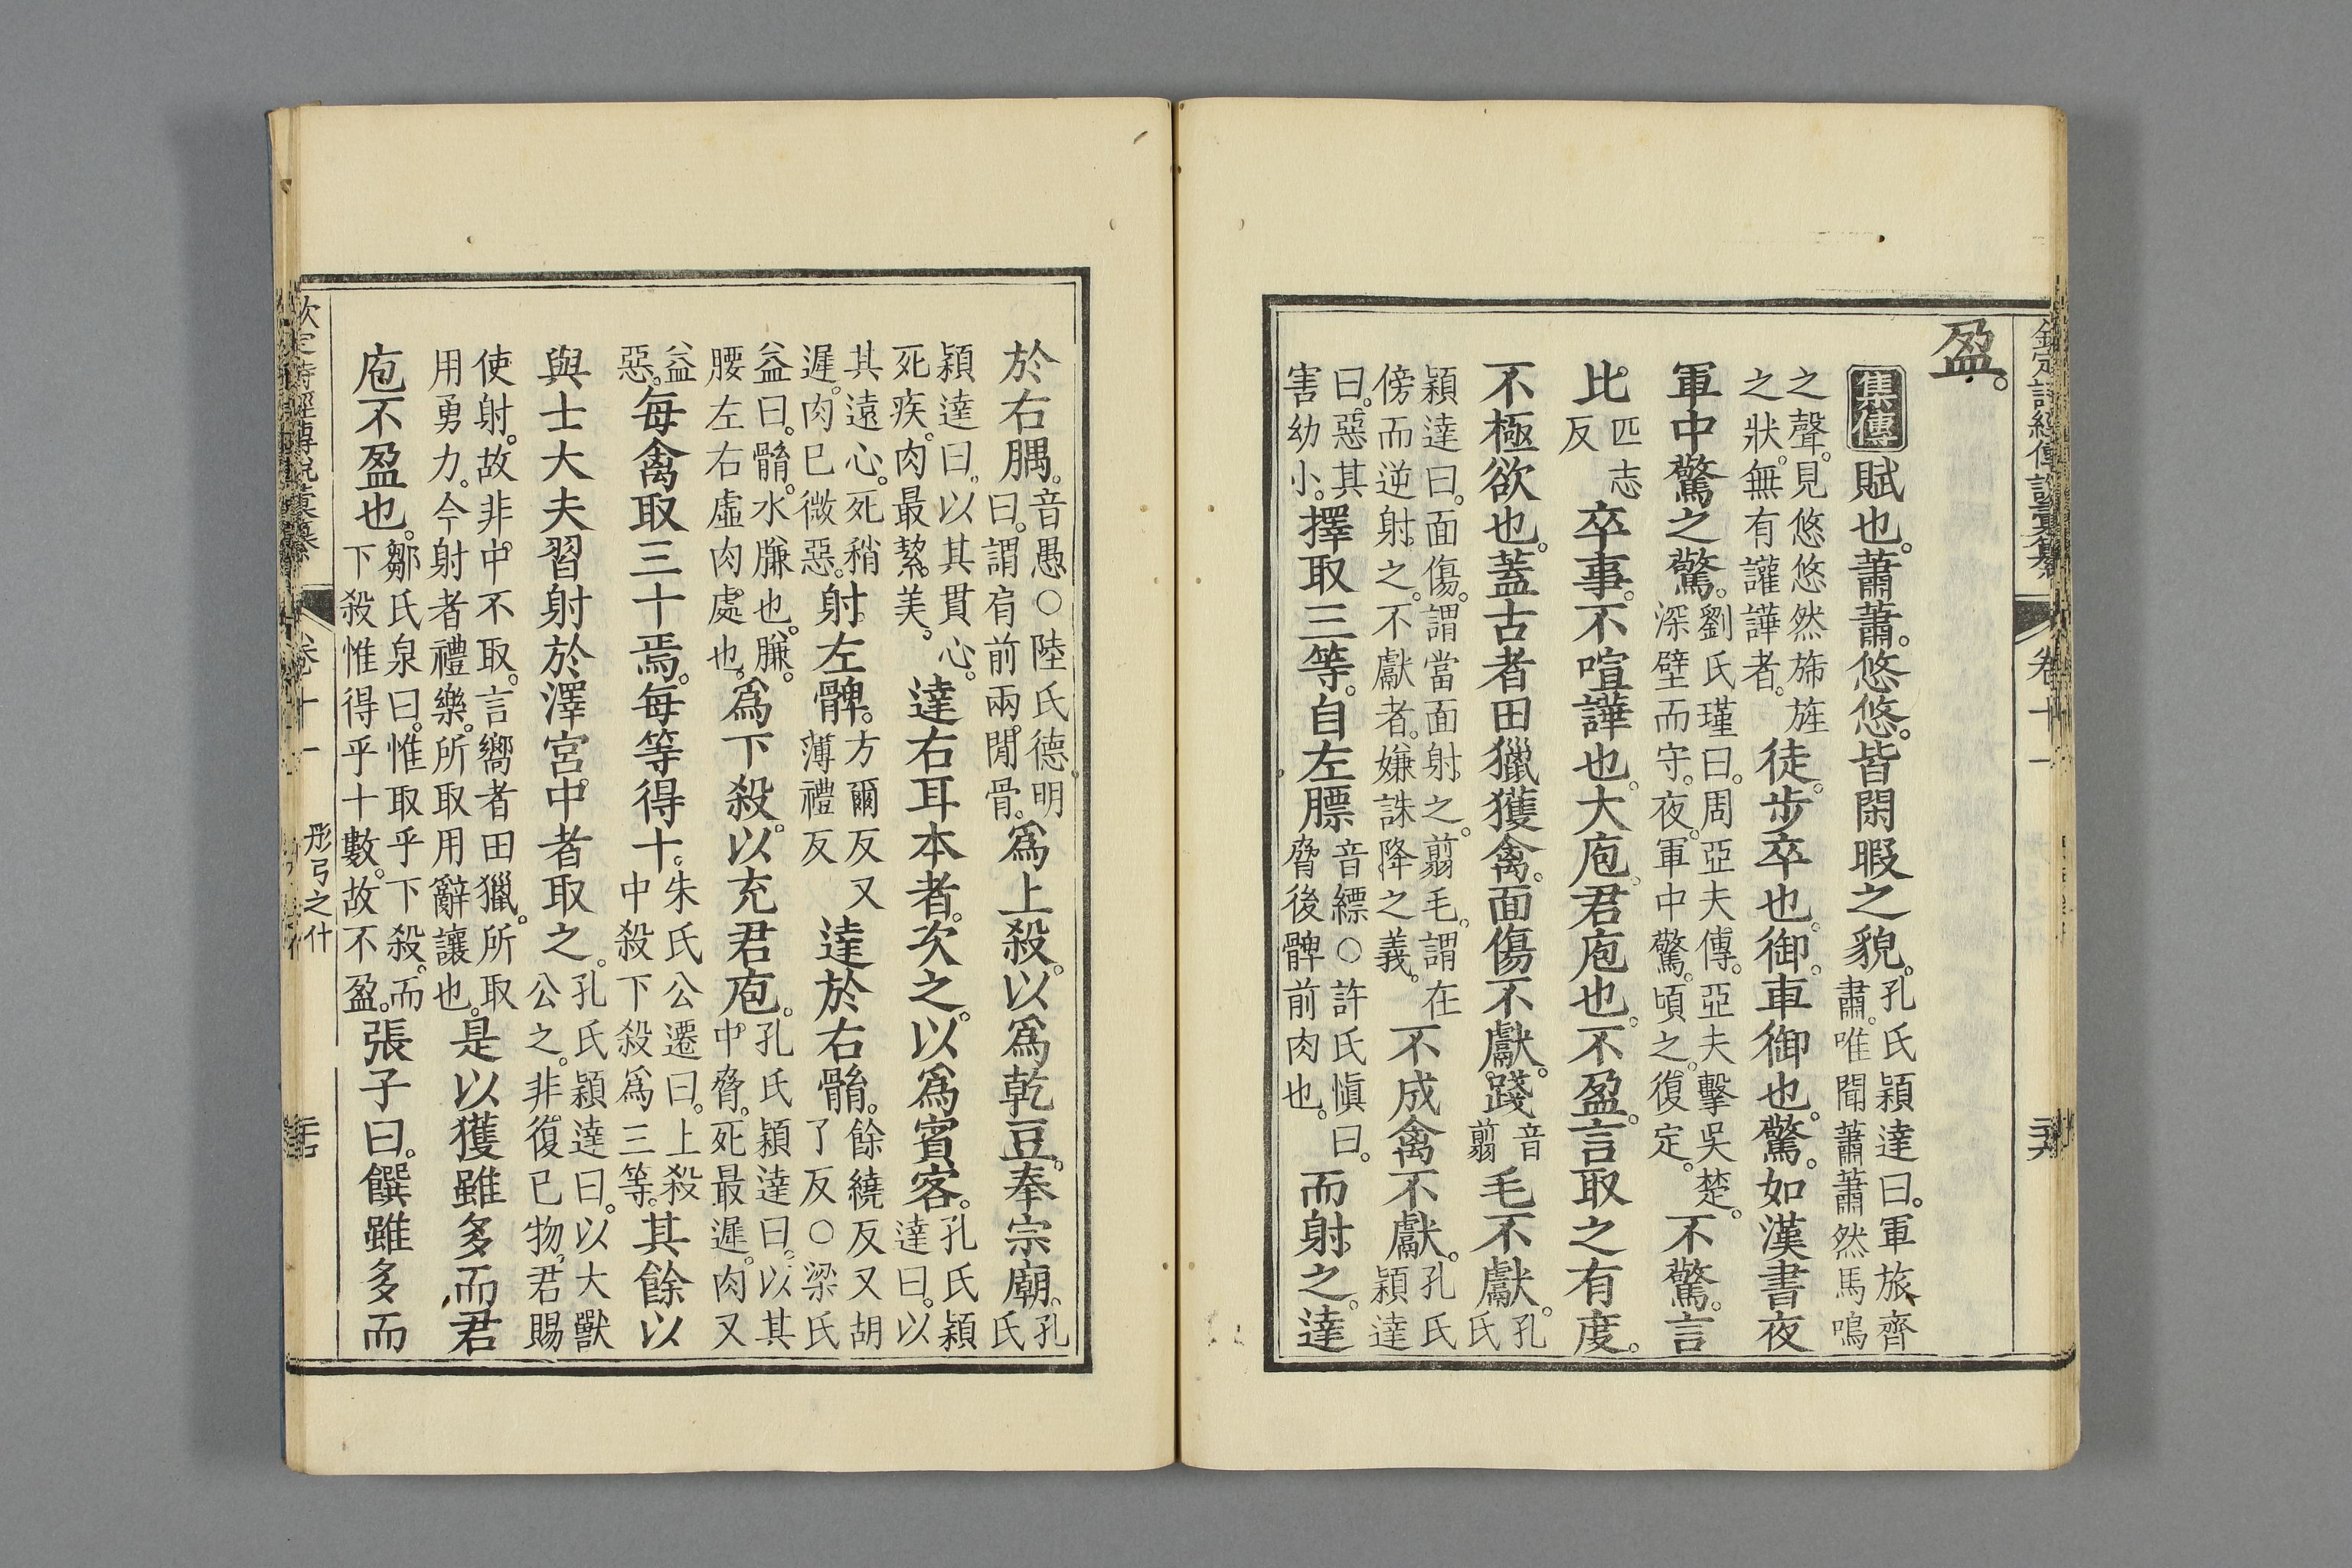 欽定詩經傳說彙纂 卷十一
盈。
集傳 賦也。蕭蕭。悠悠。皆閑暇之貌。孔氏穎達曰。軍旅齊肅。唯聞蕭蕭然馬鳴
之聲。見悠悠然旆旌之狀。無有讙譁者。徒。步卒也。御。車御也。驚。如漢書夜
軍中驚之驚。劉氏瑾曰。周亞夫傳。亞夫擊吳楚。深壁而守。夜。軍中驚。頃之。復定。不驚。言
比匹志反卒事。不喧譁也。大庖。君庖也。不盈。言取之有度。
不極欲也。蓋古者田獵獲禽。面傷不獻。踐音翦毛不獻。孔氏
穎達曰。面傷。謂當面射之。翦毛。謂在傍而逆射之。不獻者。嫌誅降之義。不成禽不獻。孔氏穎達
曰。惡其害幼小。擇取三等。自左膘音縹○許氏愼曰。脅後髀前肉也。而射之。達
於右腢。音愚○陸氏德明曰。謂肩前兩閒骨。爲上殺。以爲乾豆。奉宗廟。孔氏
穎達曰。以其貫心。死疾。肉最絜美。達右耳本者。次之。以爲賓客。孔氏穎達曰。以
其遠心。死稍遲。肉已微惡。射左髀。方爾反又薄禮反達於右䯚。餘繞反又胡了反○梁氏
益曰。䯚。水膁也。膁。腰左右虛肉處也。爲下殺。以充君庖。孔氏穎達曰。以其中脅。死最遲。肉又
益惡。每禽取三十焉。每等得十。朱氏公遷曰。上殺中殺下殺爲三等。其餘以
與士大夫習射於澤宮。中者取之。孔氏穎達曰。以大獸公之。非復已物。君賜
使射。故非中不取。言嚮者田獵。所取用勇力。今射者禮樂。所取用辭讓也。是以獲雖多而君
庖不盈也。鄒氏泉曰。惟取乎下殺。而下殺惟得乎十數。故不盈。張子曰。饌雖多而
欽定詩經傳說彙纂 卷十一 彤弓之什